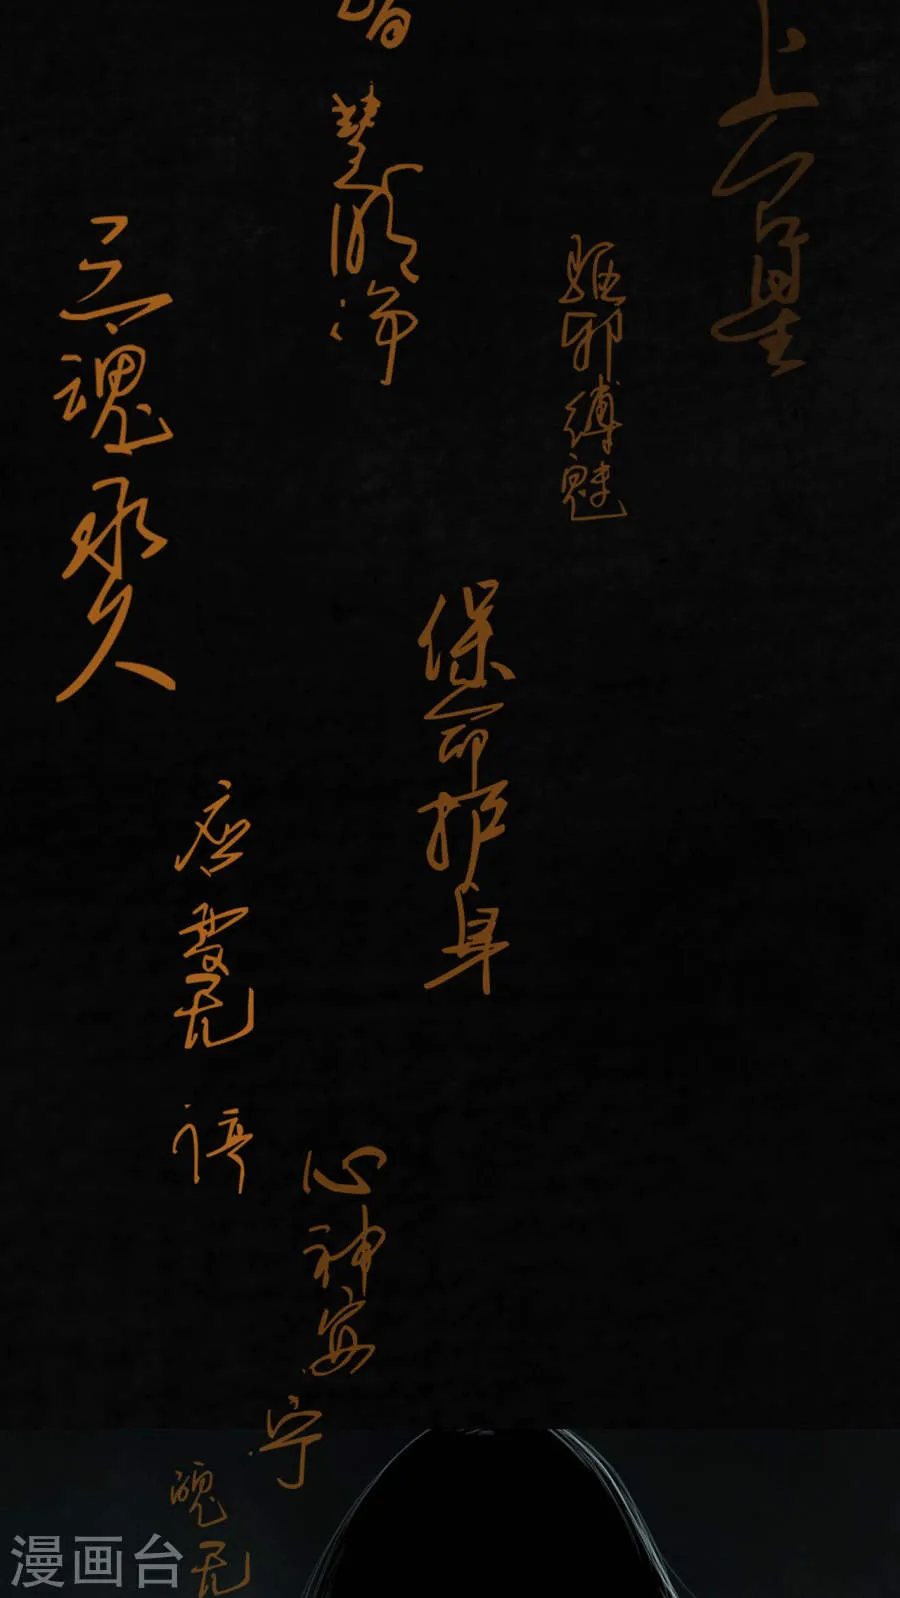 上台星
驱邪缚魅
保命护身
智慧明净
心神安宁
三魂永久
应变无停
魄无
漫画台